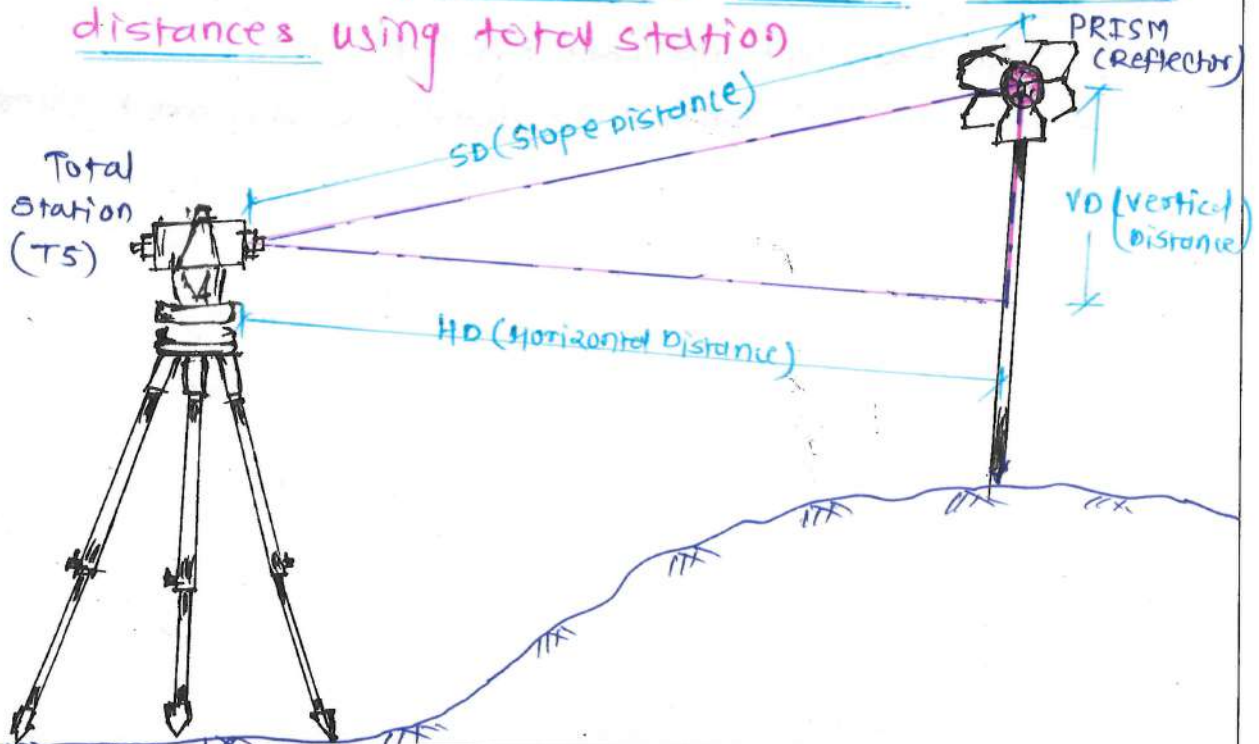 distances using total station
PRISM
(Reflector)
SD (Slope Distance)
Total
Station
(TS)
VD (Vertical
Distance)
HD (Horizontal Distance)